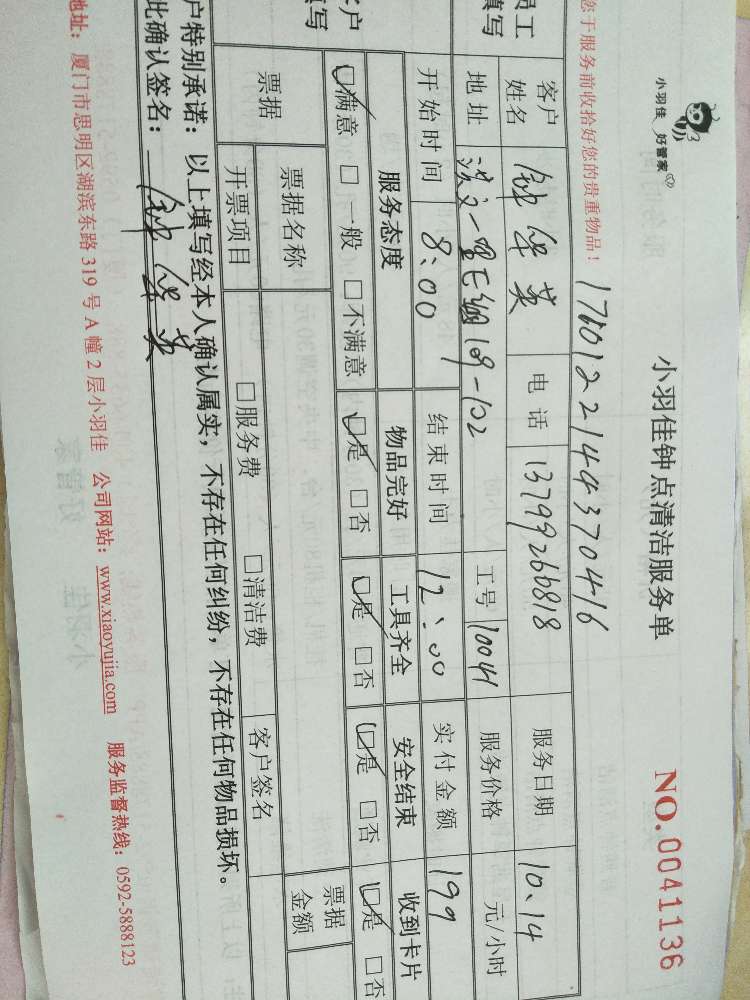 小羽佳 好管家
小羽佳钟点清洁服务单
NO.0041136
您于服务前收拾好您的贵重物品!
1760122144370416
员工
填写
客户
姓名
钟华英
电话
13799260818
服务日期
10.14
地址
一里
109-102
工号
10041
服务价格
元/小时
开始时间
8:00
结束时间
12:00
实付金额
199
客户
填写
服务态度
物品完好
工具齐全
安全结束
收到卡片
☑满意 □一般 □不满意
☑是 □否
☑是 □否
☑是 □否
☑是 □否
票据
票据名称
票据
金额
开票项目
□服务费 □清洁费
客户签名
户特别承诺:以上填写经本人确认属实,不存在任何纠纷,不存在任何物品损坏。
此确认签名:钟华英
地址:厦门市思明区湖滨东路319号A幢2层小羽佳 公司网站:www.xiaoyujia.com 服务监督热线:0592-5888123